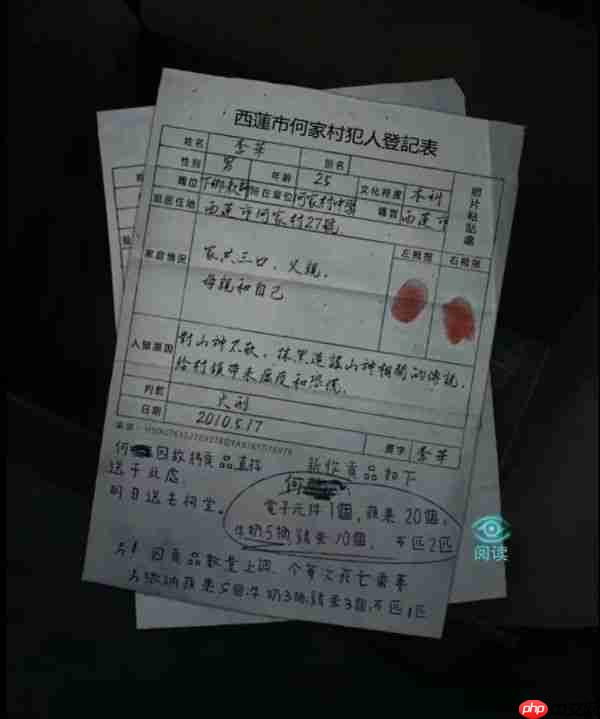 西蓮市何家村犯人登記表
姓名 李華 別名
性別 男 年齡 25 文化程度 本科
職位 下鄉教師 所在單位 何家村中學 籍貫 西蓮市
現居住地 西蓮市何家村27號
照片粘貼處
家庭情況 家共三口,父親,
母親和自己
左拇指 右拇指
入獄原因 對山神不敬,抹黑造謠山神相關的傳說,
給村鎮帶來瘟疫和恐慌。
判款 火刑
日期 2010.5.17 簽字 李華
何 因放錯貢品直接
送于此處
明日送去祠堂。
新作貢品如下
何
電子元件1個,蘋果20個,
牛奶5桶,雞蛋10個,布匹2匹
另! 因貢品數量上週
只繳納蘋果5個,牛奶3桶,雞蛋3個,布匹1匹
阅读
php